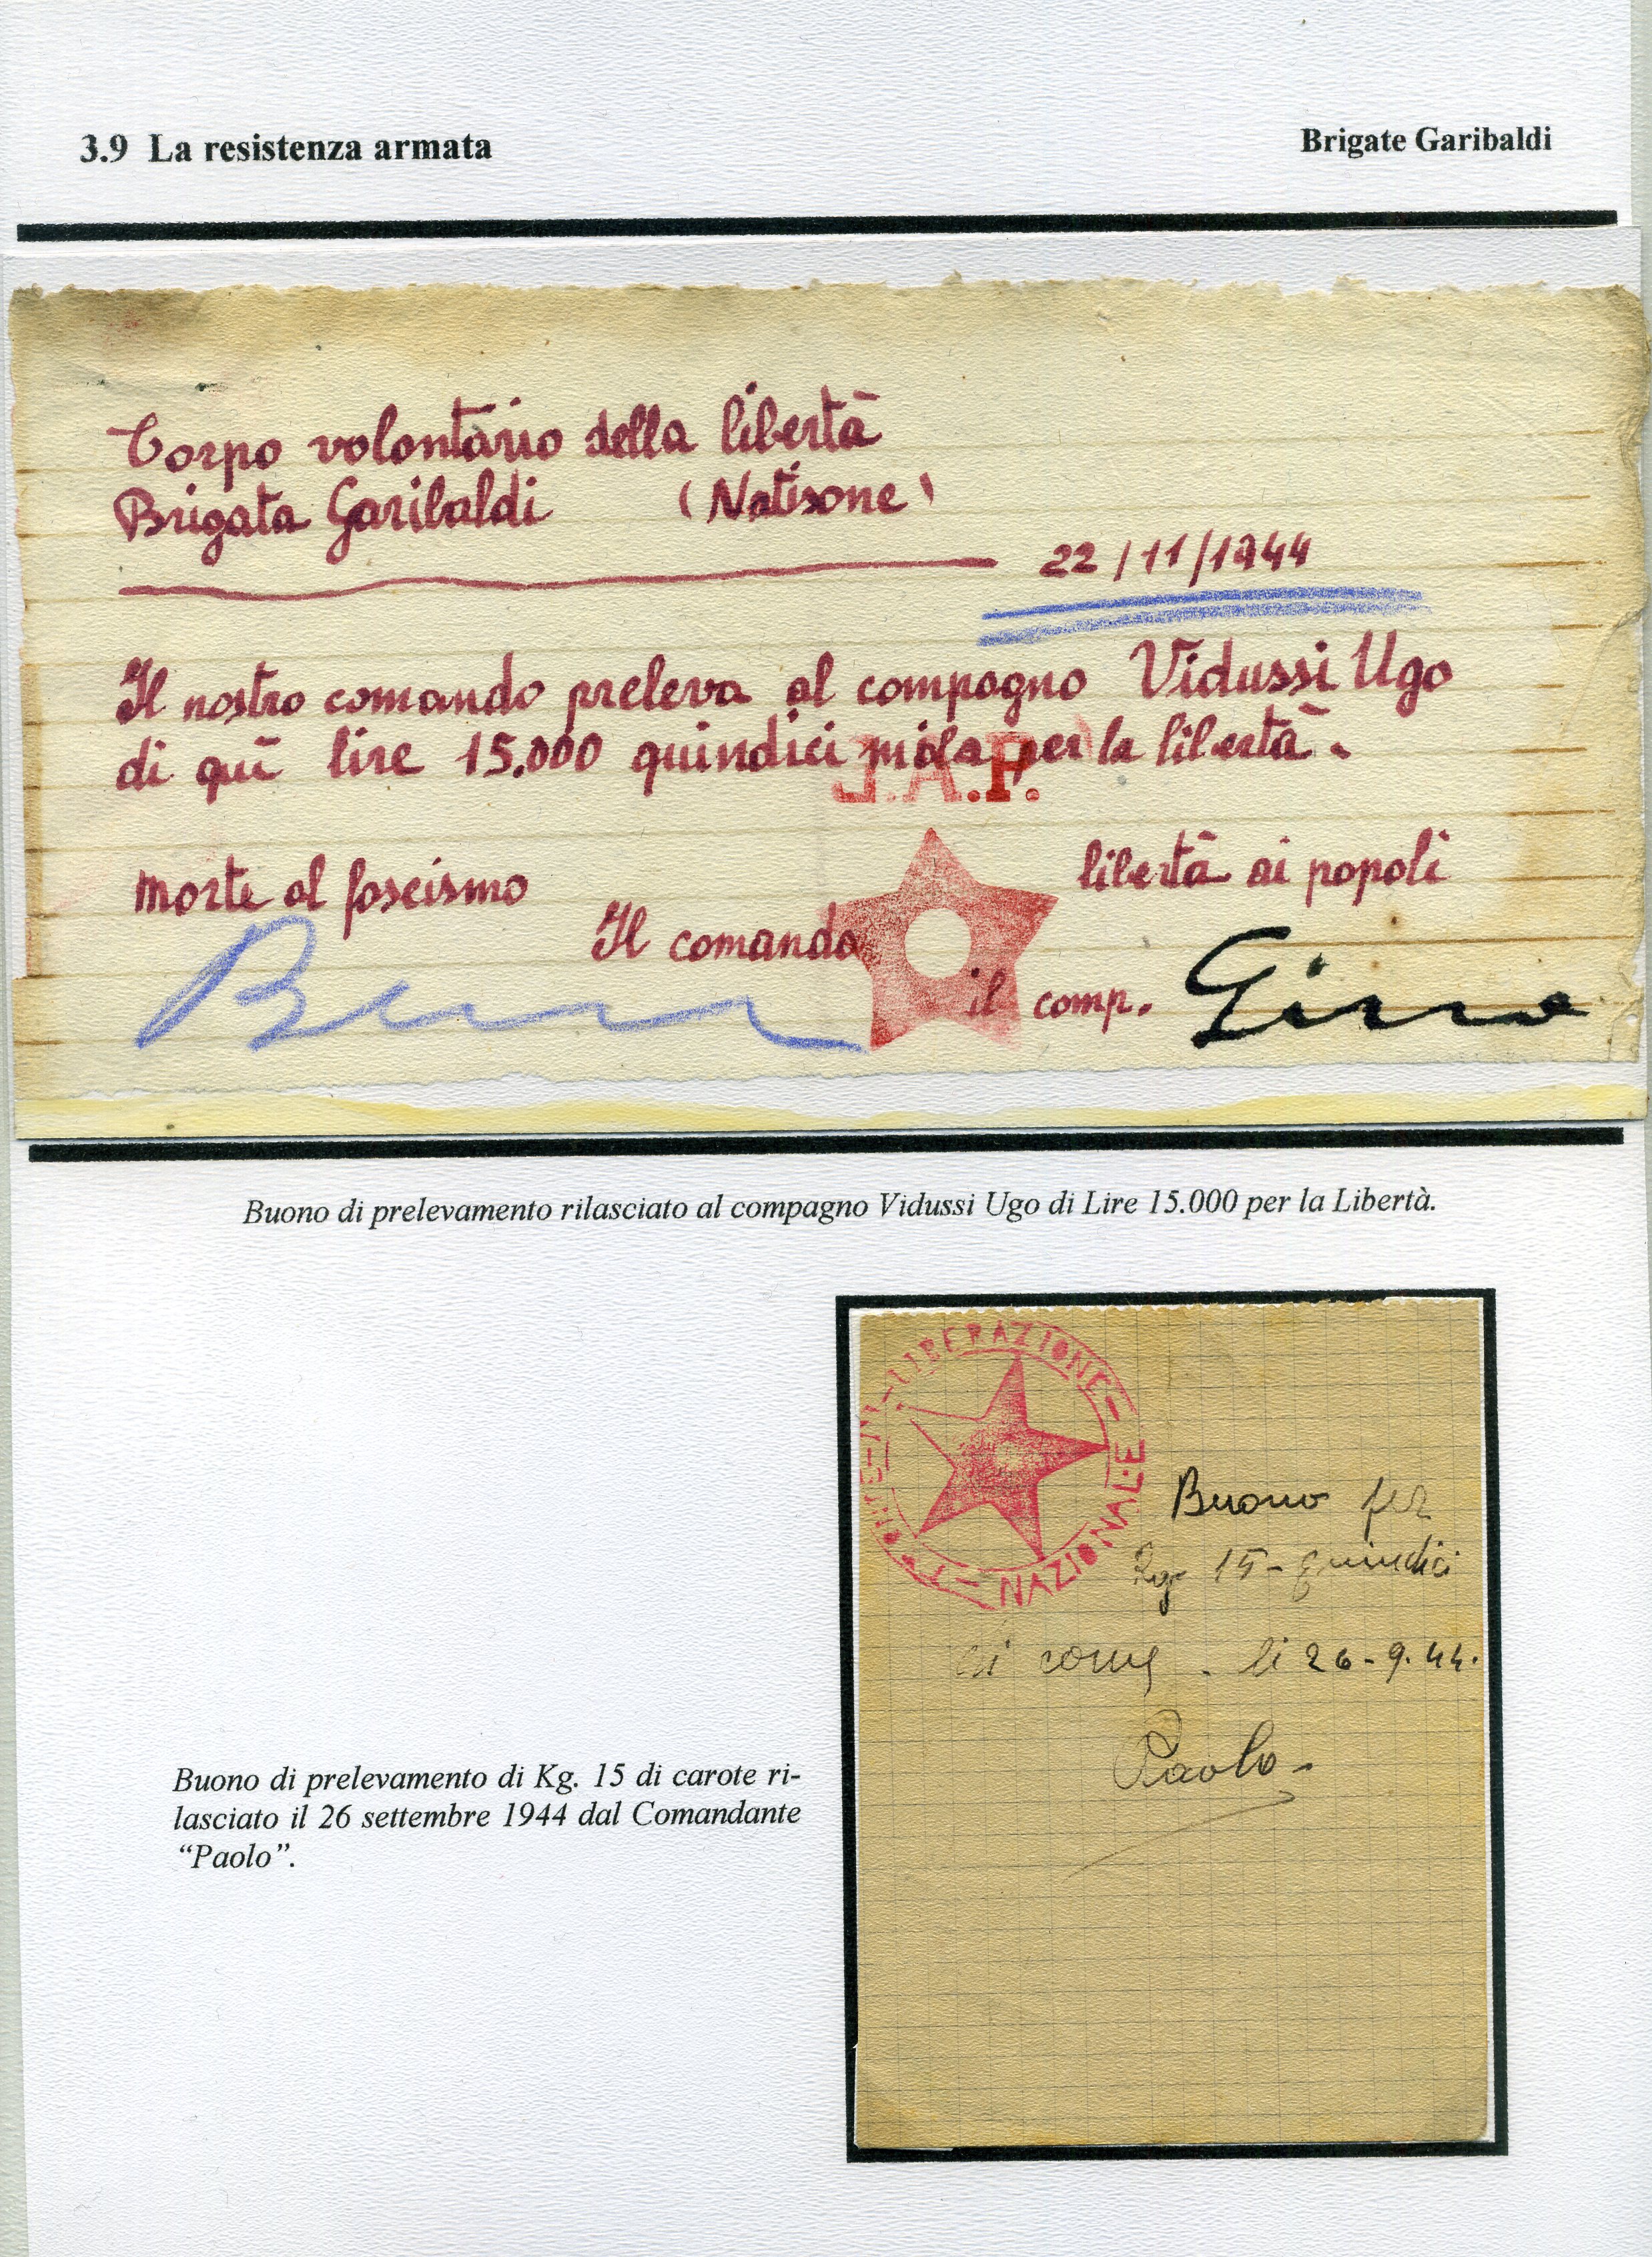 3.9 La resistenza armata
Brigate Garibaldi
Corpo volontario della libertà
Brigata Garibaldi (Natisone)
22/11/1944
Il nostro comando preleva al compagno Vidussi Ugo
di quì lire 15.000 quindici mila per la libertà.
J.A.P.
morte al fascismo
libertà ai popoli
Il comando
il comp. Gino
Buono di prelevamento rilasciato al compagno Vidussi Ugo di Lire 15.000 per la Libertà.
DI-LIBERAZIONE-
NAZIONALE
Buono per
Kg 15- quindici
di - li 26-9.44.
Paolo-
Buono di prelevamento di Kg. 15 di carote ri-
lasciato il 26 settembre 1944 dal Comandante
“Paolo”.